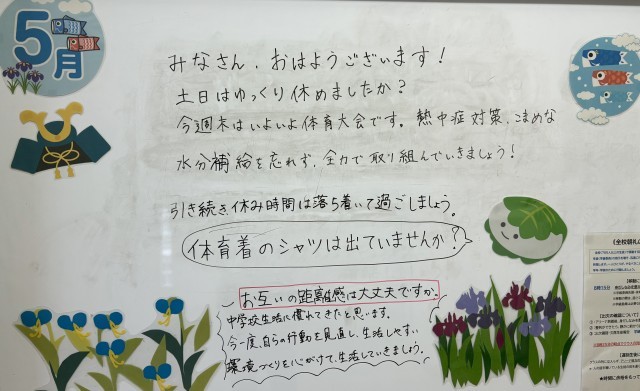 5月
みなさん、おはようございます！
土日はゆっくり休めましたか？
今週末はいよいよ体育大会です。熱中症対策、こまめな
水分補給を忘れず、全力で取り組んでいきましょう！
引き続き、休み時間は落ち着いて過ごしましょう。
体育着のシャツは出ていませんか？
お互いの距離感は大丈夫ですか。
中学校生活に慣れてきたと思います。
今一度、自らの行動を見直し、生活しやすい
環境づくりを心がけて、生活していきましょう。